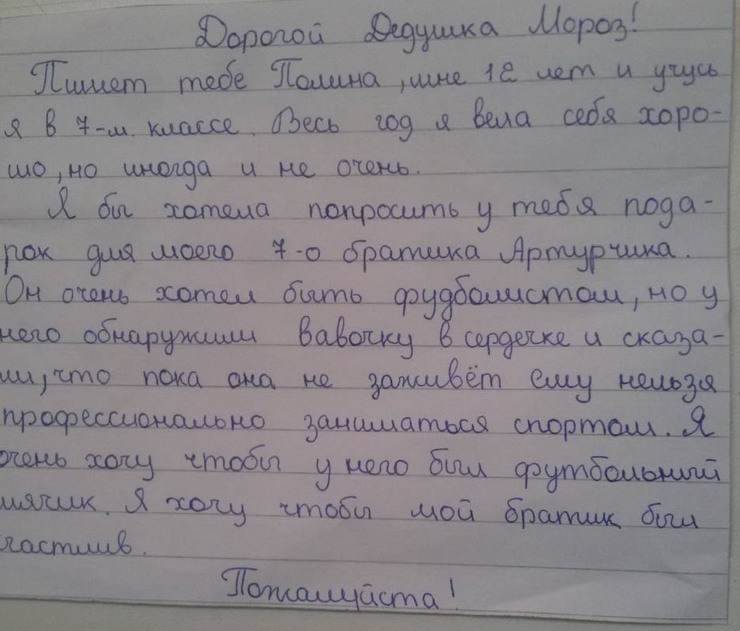 Дорогой Дедушка Мороз!
Пишет тебе Полина, мне 12 лет и учусь
я в 7-м классе. Весь год я вела себя хоро-
шо, но иногда и не очень.
Я бы хотела попросить у тебя пода-
рок для моего 7-о братика Артурчика.
Он очень хотел быть фудболистом, но у
него обнаружили вавочку в сердечке и сказа-
ли, что пока она не заживёт ему нельзя
профессионально заниматься спортом. Я
очень хочу чтобы у него был футбольный
мячик. Я хочу чтобы мой братик был
частлив.
Пожалуйста!